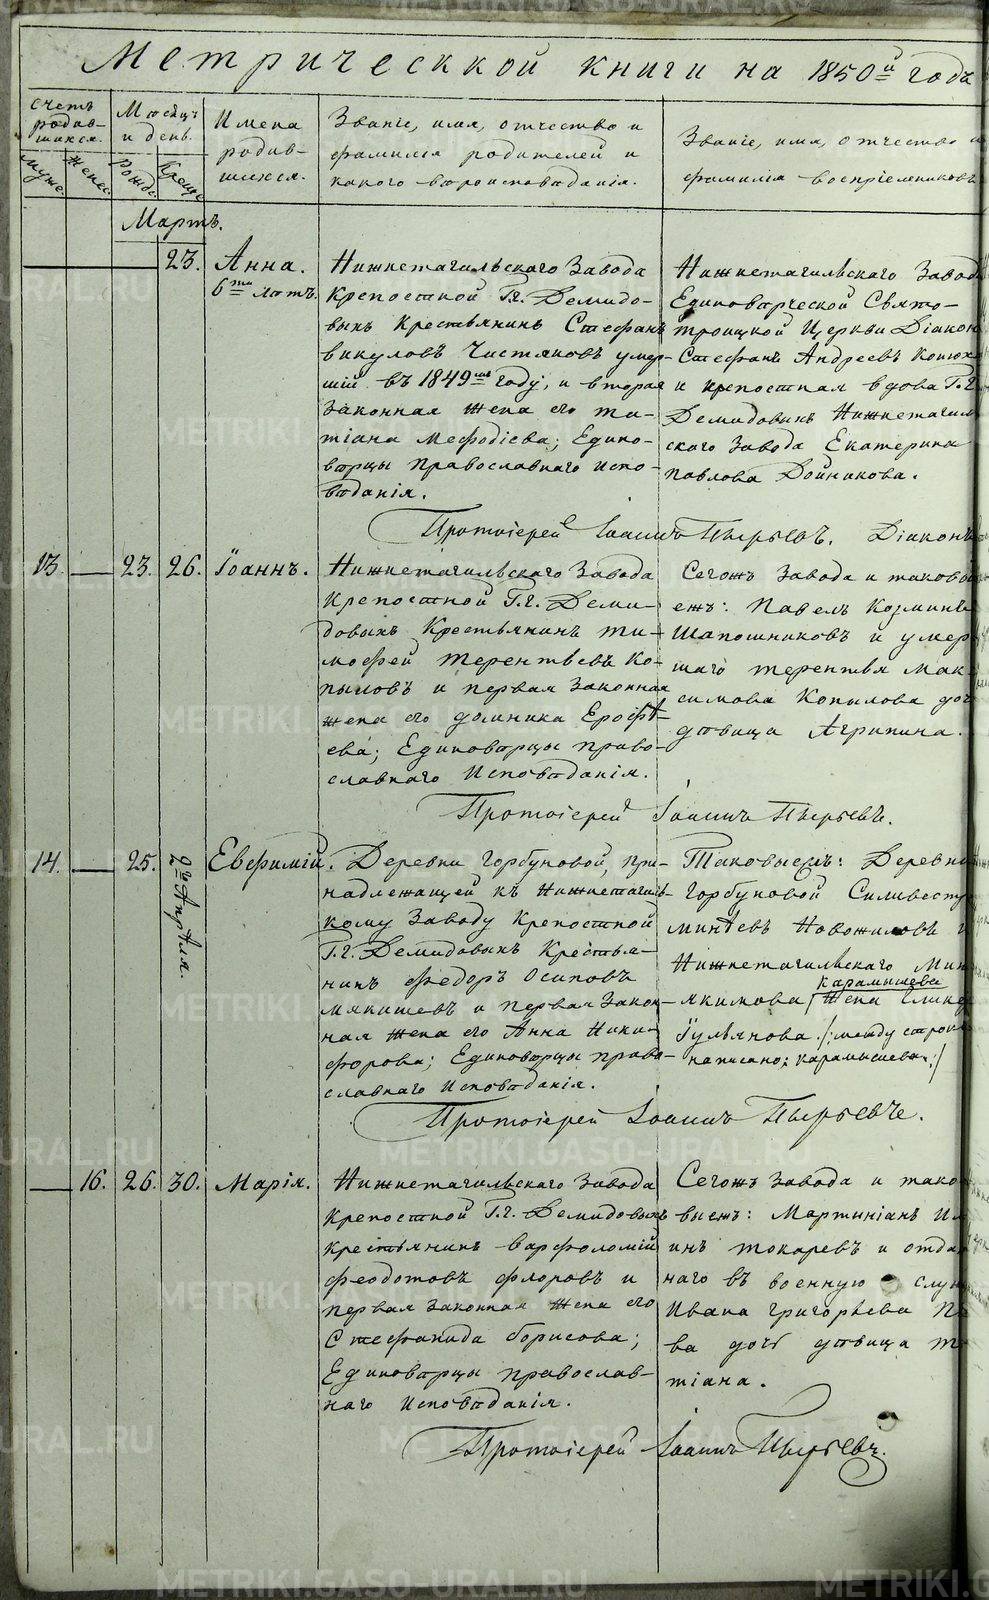 Метрическкой книги на 1850й годъ
Счетъ родив-шихся.
Мужс Женс
Месяцъ и день.
Рожд Крещ
Имена
родив-
шихся.
Званіе, имя, отчество и
фамилія родителей и
какого вероисповѣданія.
Званіе, имя, отчество и
фамилія воспріемниковъ
Мартъ.
23.
Анна.
6ти лѣтъ.
Нижнетагильскаго Завода
крепостной Г.г. Демидо-
выхъ Крестьянинъ Стефанъ
викуловъ Чистяковъ умер-
шій въ 1849мъ году, и вторая
законная жена его та-
тіана Мефодіева; Едино-
верцы православнаго испо-
ведания.
Нижнетагильскаго Завод
Единоверческой Свято-
троицкой Церкви Діакон
Стефанъ Андреевъ Конюх
и крепостная вдова Г.г.
Демидовыхъ Нижнетагил
скаго Завода Екатерина
павлова Дойникова.
Протоіерей Іоаннъ Пырьевъ. Діаконъ
13. 23. 26. Іоаннъ.
Нижнетагильскаго Завода
Крепостной Г.г. Деми-
довыхъ Крестьянинъ ти-
мофей терентьевъ Ко-
пыловъ и первая Законная
жена его домника Ерофѣ-
ева; Единоверцы право-
славнаго Исповѣданія.
Сегожъ Завода и таково
ежъ: Павелъ Козминъ
Шапошниковъ и умер
шаго терентья Мак
симова Копылова доч
дѣвица Агрипина.
Протоіерей Іоаннъ Пырьевъ.
14. 25. 2го Апрѣля Евфимій.
Деревни горбуновой, при-
надлежащей къ Нижнетагиль-
кому Заводу Крепостной
Г.г. Демидовыхъ Крестья-
нинъ федоръ Осиповъ
мякишевъ и первая Закон-
ная жена его Анна Ники-
форова; Единоверцы право-
славнаго Исповѣданія.
Таковыежъ: Деревни
горбуновой Силивестр
минѣевъ Новожиловъ и
Нижнетагильскаго Мин
карамышева
якимова жена Глике
Гульянова /:между строк
написано: карамышева:/
Протоіерей Іоаннъ Пырьевъ.
16. 26. 30. Марія.
Нижнетагильскаго Завода
крепостной Г.г. Демидовыхъ
крестьянинъ варфоломій
феодотовъ флоровъ и
первая законная жена его
Стефанида борисова;
Единоверцы православ-
наго исповѣданія.
Сегожъ Завода и тако
выежъ: Мартиніанъ Ил
инъ токаревъ и отда
наго въ военную служ
Ивана григорьева По
ва дочь дѣвица та
тіана.
Протоіерей Іоаннъ Пырьевъ.
METRIKI.GASO-URAL.RU